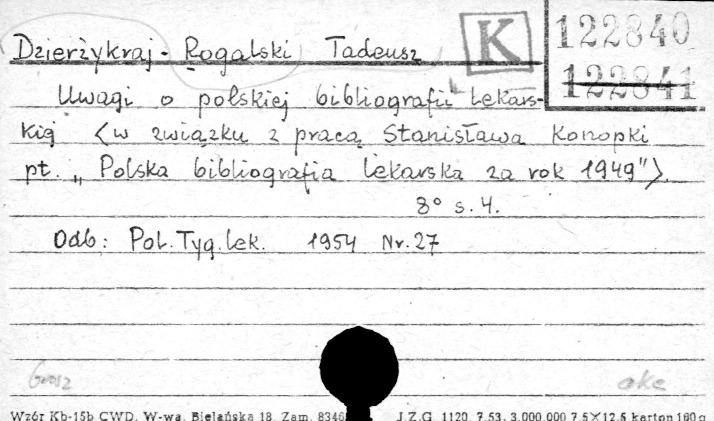 K
122840
122841
Dzierżykraj-Rogalski Tadeusz
Uwagi o polskiej bibliografii lekars-
kiej <w związku z pracą Stanisława Konopki
pt. „Polska bibliografia lekarska za rok 1949">.
8° s. 4.
Odb: Pol. Tyg. lek. 1954 Nr. 27
ake
Wzór Kb-15b CWD, W-wa, Bielańska 18. Zam. 8346 J.Z.G. 1120. 7.53. 3.000.000 7.5×12.5 karton 160 g